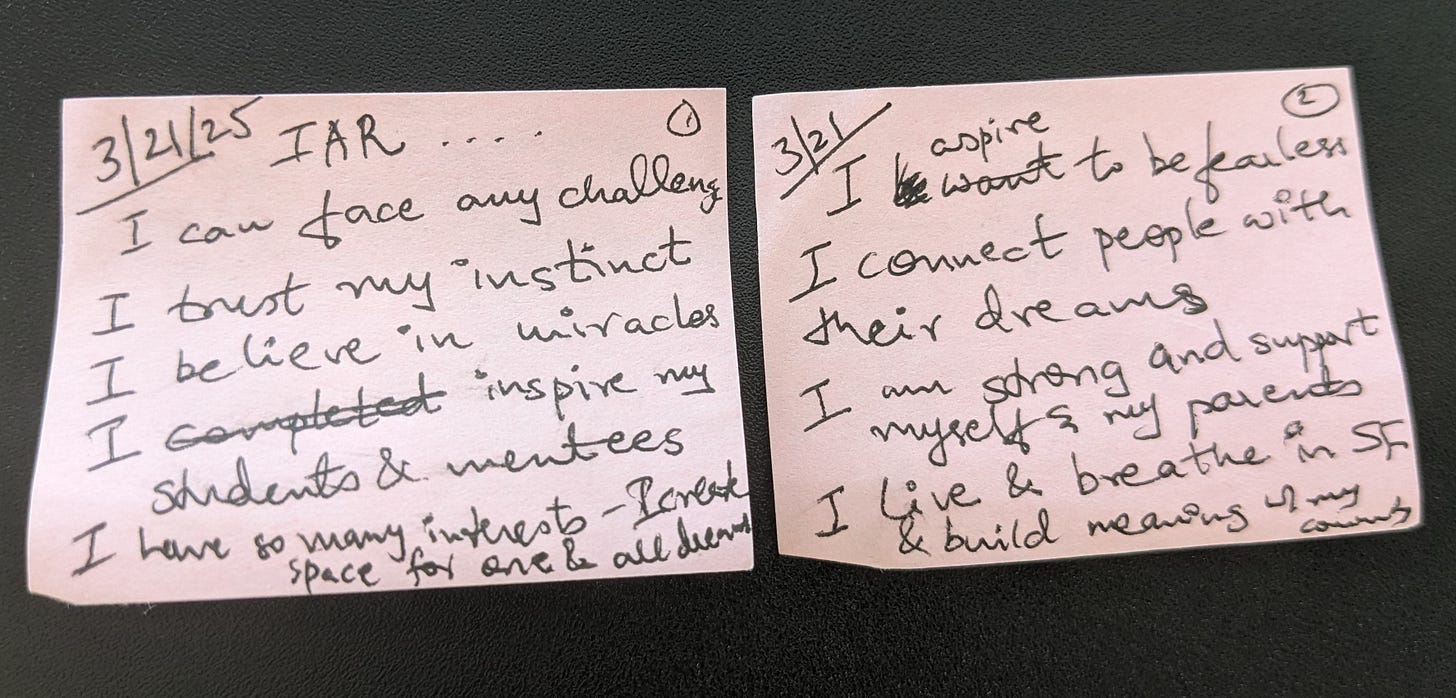 3/21/25 IAR ..... 1
I can face any challeng
I trust my instinct
I believe in miracles
I completed inspire my
students & mentees
I have so many interests - I create
space for one & all dreams
3/21 2
aspire
I want to be fearless
I connect people with
their dreams
I am strong and support
myself & my parents
I live & breathe in SF
& build meaning w my